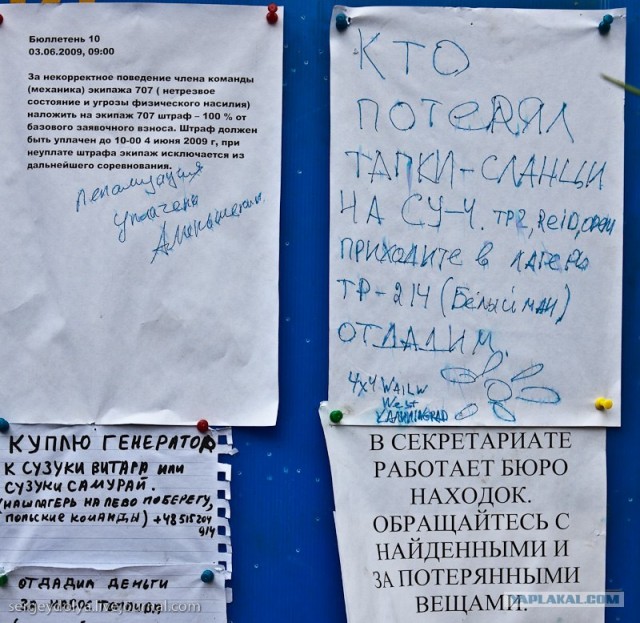 Бюллетень 10
03.06.2009, 09:00
За некорректное поведение члена команды
(механика) экипажа 707 ( нетрезвое
состояние и угрозы физического насилия)
наложить на экипаж 707 штраф – 100 % от
базового заявочного взноса. Штраф должен
быть уплачен до 10-00 4 июня 2009 г, при
неуплате штрафа экипаж исключается из
дальнейшего соревнования.
уплачена
КТО
ПОТЕРЯЛ
ТАПКИ-СЛАНЦЫ
НА СУ-4. ТР2, ReiD,
ПРИХОДИТЕ В ЛАГЕРЬ
ТР-214 (Белый ман)
ОТДАДИМ.
4x4
West
KALININGRAD
КУПЛЮ ГЕНЕРАТОР
К СУЗУКИ ВИТАРА ИЛИ
СУЗУКИ САМУРАЙ.
(НАШ ЛАГЕРЬ НА ЛЕВО ПОБЕРЕГУ,
ПОЛЬСКИЕ КОМАНДЫ) +48515204
914
ОТДАДИМ ДЕНЬГИ
В СЕКРЕТАРИАТЕ
РАБОТАЕТ БЮРО
НАХОДОК.
ОБРАЩАЙТЕСЬ С
НАЙДЕННЫМИ И
ЗА ПОТЕРЯННЫМИ
ВЕЩАМИ.
YAPLAKAL.COM